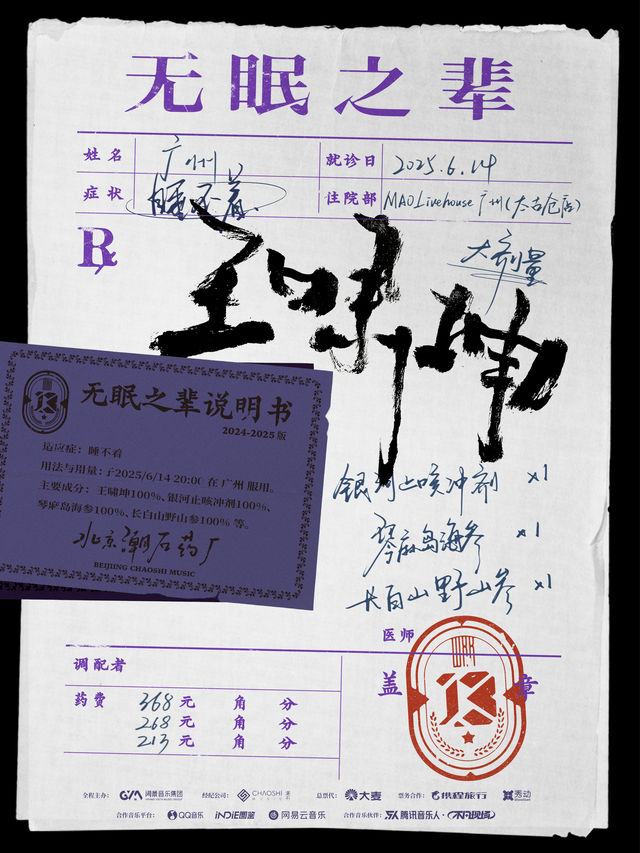 无眠之辈
姓名 广州 就诊日 2025.6.14
症状 睡不着 住院部 MAO Livehouse 广州(太古仓店)
R
大剂量
王啸坤
无眠之辈说明书
2024-2025版
适应症：睡不着
用法与用量：于2025/6/14 20:00 在 广州 服用。
主要成分：王啸坤100%、银河止咳冲剂100%、
琴麻岛海参100%、长白山野山参100% 等。
北京潮石药厂
BEIJIING CHAOSHI MUSIC
银河止咳冲剂 x1
琴麻岛海参 x1
长白山野山参 x1
医师
盖 章
调配者
药费 368 元 角 分
268 元 角 分
213 元 角 分
全程主办： GYM 经纪公司： CHAOSHI MUSIC 潮石 总票代： 大麦 票务合作： 携程旅行 秀动
合作音乐平台： QQ音乐 iNDIE圈鉴 网易云音乐 合作音乐伙伴： 腾讯音乐人·不凡现场